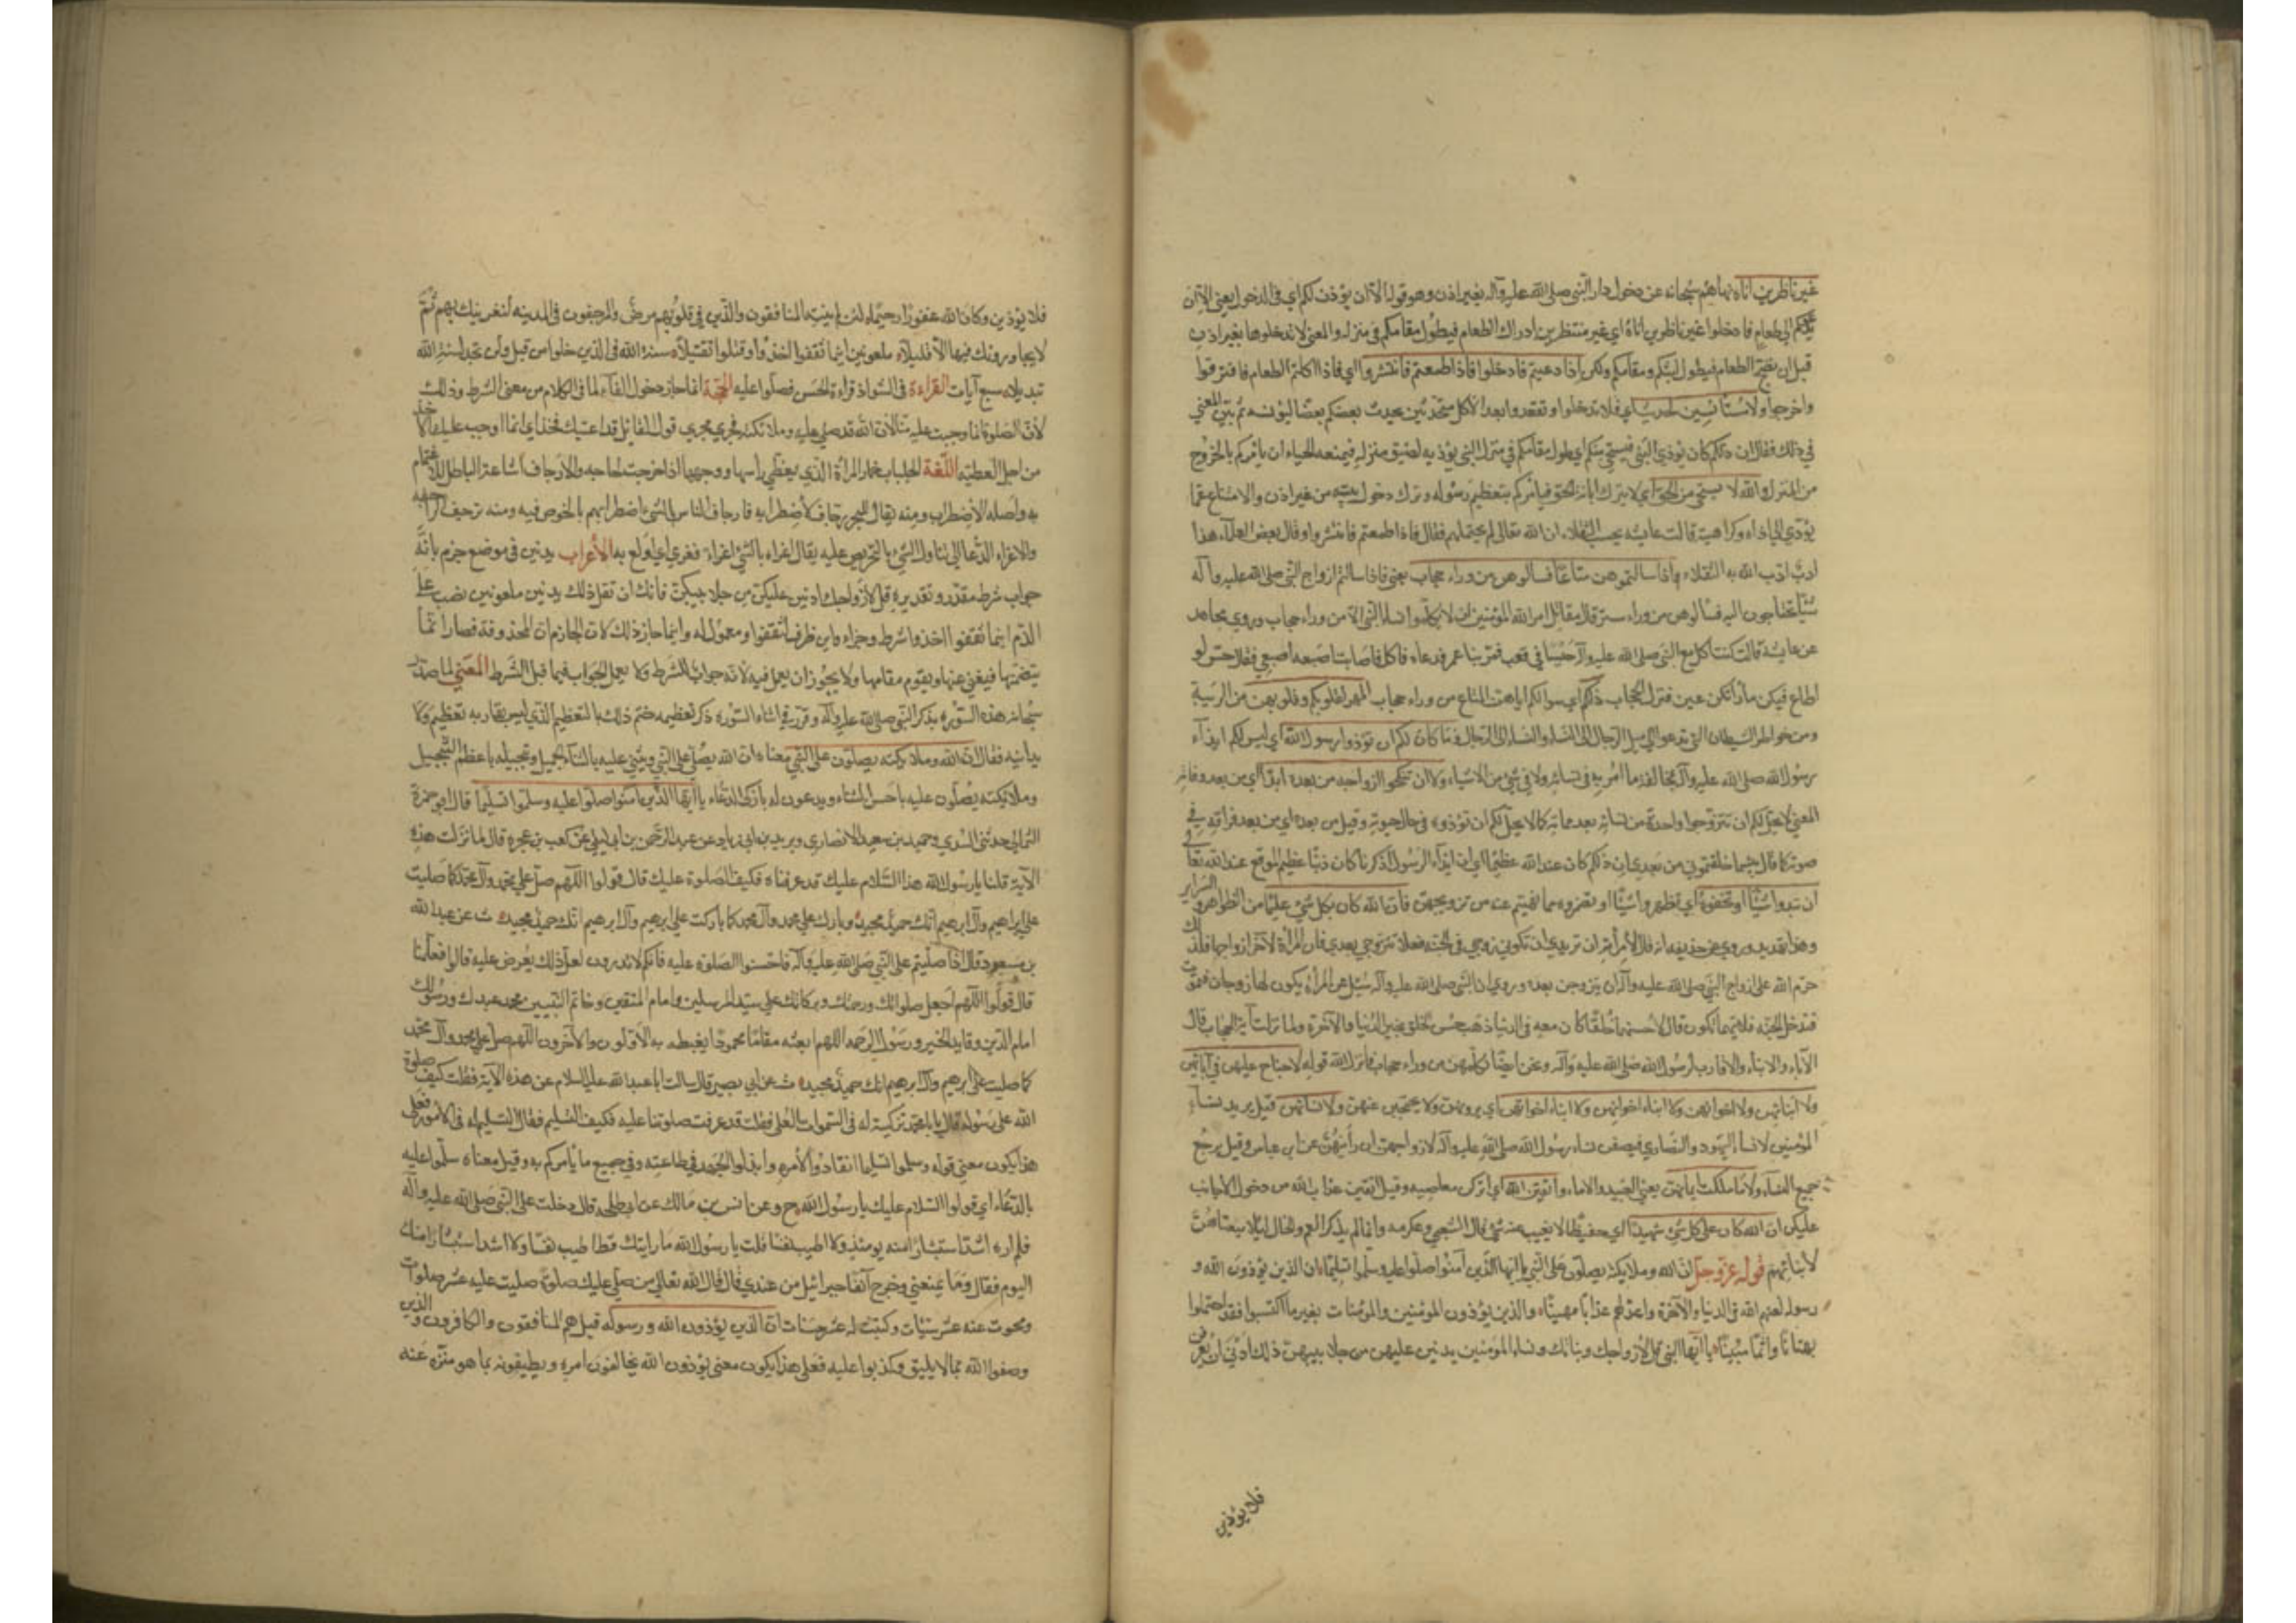 غير ناظرين اناه نهاهم سبحانه عن دخول دار النبي صلى الله عليه وآله بغير اذن وهو قوله الا ان يؤذن لكم اي في الدخول يعني الا ان
يدعوكم الى طعام فادخلوا غير ناظرين اناه اي غير منتظرين ادراك الطعام فيطول مقامكم في منزله والمعنى لا تدخلوها بغير اذن
قبل ان نضج الطعام فيطول لبثكم ومقامكم ولكن اذا دعيتم فادخلوا فاذا طعمتم فانتشروا اي فاذا اكلتم الطعام فافترقوا
واخرجوا ولا مستأنسين لحديث اي فلا تدخلوا وتقعدوا بعد الاكل متحدثين يحدث بعضكم بعضا ليؤنسه ثم بين المعنى
في ذلك فقال ان ذلكم كان يؤذي النبي فيستحيي منكم اي طول مقامكم في منزل النبي يؤذيه لضيق منزله فيمنعه الحياء ان يأمركم بالخروج
من المنزل والله لا يستحيي من الحق اي لا يترك ابانة الحق فيأمركم بتعظيم رسوله وترك دخول بيته من غير اذن والامتناع عما
يؤدي الى اذاه وكراهيته قالت عايشه يحسب الثقلاء ان الله تعالى لم يحتملهم فقال فاذا طعمتم فانتشروا وقال بعض العلماء هذا
ادب ادب الله به الثقلاء واذا سالتموهن متاعا فسالوهن من وراء حجاب يعني فاذا سالتم ازواج النبي صلى الله عليه وآله
شيئا تحتاجون اليه فسالوهن من وراء ستر قال مقاتل امر الله المؤمنين ان لا يكلموا نساء النبي الا من وراء حجاب وروى مجاهد
عن عايشة قالت كنت آكل مع النبي صلى الله عليه وآله حيسا في قعب فمر بنا عمر فدعاه فاكل فاصابت اصبعه اصبعي فقال حس لو
اطاع فيكن ما رأتكن عين فنزل الحجاب ذلكم اي سوالكم اياهن المتاع من وراء حجاب اطهر لقلوبكم وقلوبهن من الريبة
ومن خواطر الشيطان التي تدعو الى ميل الرجال الى النساء والنساء الى الرجال وما كان لكم ان تؤذوا رسول الله اي ليس لكم ايذآء
رسول الله صلى الله عليه وآله بمخالفة ما امر به في نسائه ولا في شئ من الاشياء ولا ان تنكحوا ازواجه من بعده ابدا اي من بعد وفاته
المعنى لا يحل لكم ان تتزوجوا واحدة من نسائه بعد مماته كما لا يحل لكم ان تؤذوه في حال حيوته وقيل من بعده اي من بعد فراقه في
حيوته كما قال بئسما خلفتموني من بعدي ان ذلكم كان عند الله عظيما اي ان ايذآء الرسول بما ذكرنا كان ذنبا عظيم الموقع عند الله تعالى
ان تبدوا شيئا او تخفوه اي تظهروا شيئا او تضمروه مما نهيتم عنه من تزويجهن فان الله كان بكل شئ عليما من الظواهر والسراير
وهذا تهديد وروي عن حذيفه انه قال لامرأته ان تريدي ان تكوني زوجي في الجنه فعلا تتزوجي بعدي فان المرأة لآخر ازواجها فلذلك
حرم الله على ازواج النبي صلى الله عليه وآله ان يتزوجن بعده وروي ان النبي صلى الله عليه وآله سئل عن المرأة يكون لها زوجان فتموت
فتدخل الجنة فلايهما تكون قال لاحسنهما خلقا كان معه في الدنيا ذهب حسن الخلق بخير الدنيا والآخرة ولما نزلت آية الحجاب قال
الآباء والابناء والاقارب لرسول الله صلى الله عليه وآله ونحن ايضا نكلمهن من وراء حجاب فانزل الله قوله لا جناح عليهن في آبائهن
ولا ابنائهن ولا اخوانهن ولا ابناء اخوانهن ولا ابناء اخواتهن اي يروهن ولا يحتجبن عنهم ولا نسائهن قيل يريد نساء
المؤمنين لا نساء اليهود والنصارى فيصفن نساء رسول الله صلى الله عليه وآله لازواجهن ان رأينهن عن ابن عباس وقيل يرجع
جميع النساء ولا ما ملكت ايمانهن يعني العبيد والاماء واتقين الله اي اتركن معاصيه وقيل اتقين عذاب الله من دخول الاجانب
عليكن ان الله كان على كل شئ شهيدا اي حفيظا لا يغيب عنه شئ قال الشعبي وعكرمه وانما لم يذكر العم والخال لئلا ينعتاهن
لابنائهم قوله عز وجل ان الله وملايكته يصلون على النبي يا ايها الذين آمنوا صلوا عليه وسلموا تسليما ان الذين يؤذون الله و
رسوله لعنهم الله في الدنيا والآخرة واعد لهم عذابا مهينا والذين يؤذون المؤمنين والمؤمنات بغير ما اكتسبوا فقد احتملوا
بهتانا واثما مبينا يا ايها النبي قل لازواجك وبناتك ونساء المؤمنين يدنين عليهن من جلابيبهن ذلك ادنى ان يعرفن
فلا يؤذين
فلا يؤذين وكان الله غفورا رحيما لئن لم ينته المنافقون والذين في قلوبهم مرض والمرجفون في المدينه لنغرينك بهم ثم
لا يجاورونك فيها الا قليلا ملعونين اينما ثقفوا اخذوا وقتلوا تقتيلا سنة الله في الذين خلوا من قبل ولن تجد لسنة الله
تبديلا سبع آيات القراءة في الشواذ قراءة الحسن فصلوا عليه الحجة انما جاز دخول الفاء لما في الكلام من معنى الشرط وذلك
لان الصلوة انما وجبت عليه منا لان الله قد صلى عليه وملائكته فجرى مجرى قول القائل قد اعطيتك فخذ اي انما اوجب عليك الاخذ
من اجل العطيه اللغة الجلباب خمار المرأة الذي يغطي رأسها ووجهها اذا خرجت لحاجه والارجاف اشاعة الباطل للاغتمام
به واصله الاضطراب ومنه يقال للبحر رجاف لاضطرابه فارجاف الناس بالشئ اضطرابهم بالخوض فيه ومنه ترجف الراجفه
والاغراء الدعا الى تناول الشئ بالتحريص عليه يقال اغراه بالشئ اغراء فغري اي اولع به الاعراب يدنين في موضع جزم بانه
جواب شرط مقدر وتقديره قل لازواجك ادنين عليكن من جلابيبكن فانك ان تقل ذلك يدنين ملعونين نصب على
الذم اينما ثقفوا اخذوا شرط وجزاء واين ظرف لثقفوا ومعمول له وانما جاز ذلك لان الجازم ان المحذوفة فصار اينما
يتضمنها فيغني عنها ويقوم مقامها ولا يجوز ان يعمل فيه لانه جواب الشرط ولا يعمل الجواب فيما قبل الشرط المعنى لما صدر
سبحانه هذه السوره بذكر النبي صلى الله عليه وآله وقرر في اثناء السورة ذكر تعظيمه ختم ذلك بالتعظيم الذي ليس يقاربه تعظيم ولا
يدانيه فقال ان الله وملايكته يصلون على النبي معناه ان الله يصلي على النبي ويثني عليه بالثناء الجميل وتبجيله باعظم التبجيل
وملايكته يصلون عليه باحسن الثناء ويدعون له بازكى الدعاء يا ايها الذين آمنوا صلوا عليه وسلموا تسليما قال ابو حمزة
الثمالي حدثني السدي وحميد بن سعيد الانصاري وبريد بن ابي زياد عن عبد الرحمن بن ابي ليلى عن كعب بن عجره قال لما نزلت هذه
الآية قلنا يا رسول الله هذا السلام عليك قد عرفناه فكيف الصلوة عليك قال قولوا اللهم صل على محمد وآل محمد كما صليت
على ابراهيم وآل ابرهيم انك حميد مجيد وبارك على محمد وآل محمد كما باركت على ابرهيم وآل ابرهيم انك حميد مجيد ث عن عبد الله
بن مسعود قال اذا صليتم على النبي صلى الله عليه وآله فاحسنوا الصلوة عليه فانكم لا تدرون لعل ذلك يعرض عليه قالوا فعلمنا
قال قولوا اللهم اجعل صلواتك ورحمتك وبركاتك على سيد المرسلين وامام المتقين وخاتم النبيين محمد عبدك ورسولك
امام الدين وقايد الخير ورسول الرحمه اللهم ابعثه مقاما محمودا يغبطه به الاولون والآخرون اللهم صل على محمد وآل محمد
كما صليت على ابرهيم وآل ابرهيم انك حميد مجيد ث عن ابي بصير قال سالت ابا عبد الله عليه السلام عن هذه الآية فقلت كيف صلوة
الله على رسوله قال يا با محمد تزكيته له في السموات العلى فقلت قد عرفت صلوتنا عليه فكيف التسليم فقال التسليم له في الامور فعلى
هذا يكون معنى قوله وسلموا تسليما انقادوا لامره وابذلوا الجهد في طاعته وفي جميع ما يأمركم به وقيل معناه سلموا عليه
بالدعاء اي قولوا السلام عليك يا رسول الله ح وعن انس بن مالك عن ابي طلحه قال دخلت على النبي صلى الله عليه وآله
فلم اره اشد استبشارا منه يومئذ ولا اطيب نفسا قلت يا رسول الله ما رايتك قط اطيب نفسا ولا اشد استبشارا منك
اليوم فقال وما يمنعني وخرج آنفا جبرائيل من عندي قال قال الله تعالى من صلى عليك صلوة صليت عليه عشر صلوات
ومحوت عنه عشر سيئات وكتبت له عشر حسنات ان الذين يؤذون الله ورسوله قيل هم المنافقون والكافرون والذين
وصفوا الله بما لا يليق وكذبوا عليه فعلى هذا يكون معنى يؤذون الله يخالفون امره ويصفونه بما هو منزه عنه